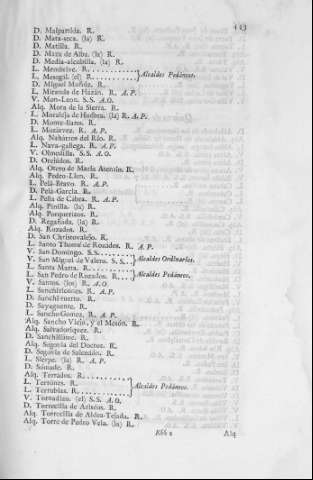 D. Malpartida. R.
D. Mata-seca. (la) R.
D. Matilla. R.
D. Maza de Alba. (la) R.
D. Media-alcabilla. (la) R.
L. Mendoive. R.
L. Mesegal. (el) R. Alcaldes Pedáneos.
D. Miguel Muñóz. R.
L. Miranda de Hazán. R. A. P.
V. Mon-Leon. S.S. A.O.
Alq. Mora de la Sierra. R.
L. Moraleja de Huebra. (la) R. A. P.
D. Monte-llano. R.
L. Mozárvez. R. A. P.
Alq. Naharros del Rio. R.
L. Nava-gallega. R. A. P.
V. Olmedilla. S.S. A.O.
D. Orejudos. R.
Alq. Otero de María Asensio. R.
Alq. Pedro-Llen. R.
L. Pelá-Bravo. R. A. P.
D. Pela-García. R.
L. Peña de Cabra. R. A. P.
Alq. Pinilla. (la) R.
Alq. Porquerizos. R.
D. Regañada. (la) R.
Alq. Rozados. R.
D. San Christovalejo. R.
L. Santo Thomé de Rozados. R. A. P.
V. San Domingo. S.S.
V. San Miguél de Valero. S.S. Alcaldes Ordinarios.
L. Santa Marta. R.
L. San Pedro de Rozados. R. Alcaldes Pedáneos.
V. Santos. (los) R. A.O.
L. Sanchiricones. R. A. P.
D. Sanchituerto. R.
D. Sayaguente. R.
L. Sancho-Gomez. R. A. P.
Alq. Sancho Viejo, y el Mesón. R.
Alq. Salvadoriquez. R.
D. Sanchillame. R.
Alq. Segovia del Doctor. R.
D. Segovia de Salcedón. R.
L. Sierpe. (la) R. A. P.
D. Sómade. R.
Alq. Terrados. R.
L. Terrones. R.
L. Terrubias. R. Alcaldes Pedáneos.
V. Tornadizo. (el) S.S. A.O.
D. Torrecilla de
Alq. Torrecilla de Aldea-Tejada. R.
Alq. Torre de Pedro Vela. (la) R.
Kkk 2 Alq